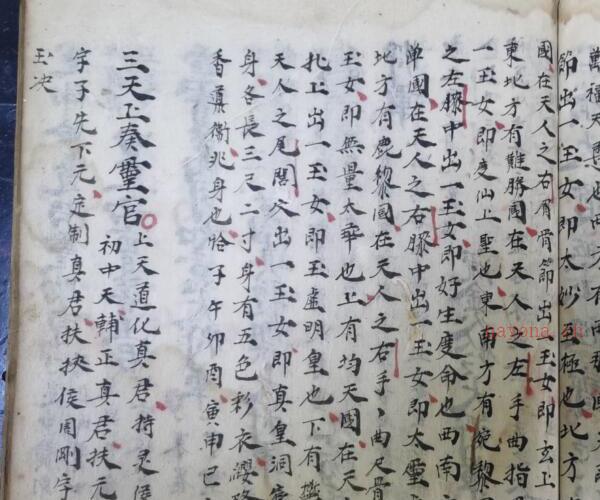 節出一玉女即太妙至極也北方
國在天人之右肩骨節出一玉女即玄上
東北方有難勝國在天人之左手曲指
一玉女即度仙上聖也東南方有宛黎
之左膝中出一玉女即好生度命也西南
單國在天人之右膝中出一玉女即太靈
地方有鹿黎國在天人之右手曲尺骨
玉女即無量太華也上有均天國在天
孔上出一玉女即玉虛明皇也下有
天人之尾閭穴出一玉女即真皇洞
身各長三尺二寸身有五色彩衣瓔珞
香　衛兆身也恰子午卯酉寅申巳
三天上奏靈官
上天道化真君持灵
初中天輔正真君扶元
字子先下元定制真君扶　侯周剛字
玉决